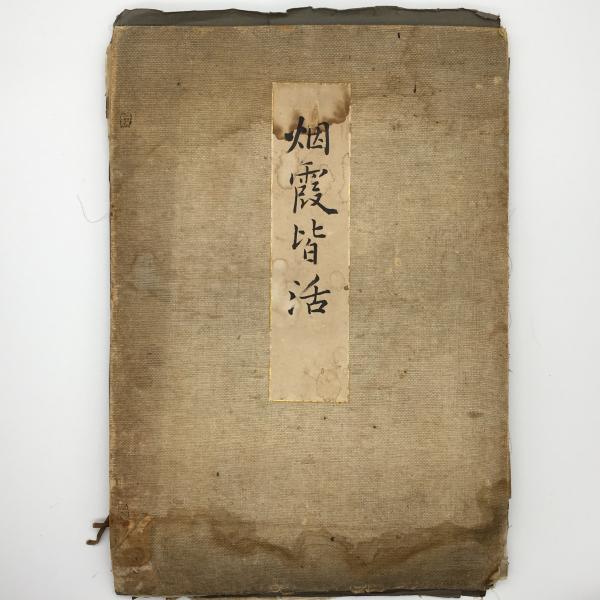 烟霞皆活